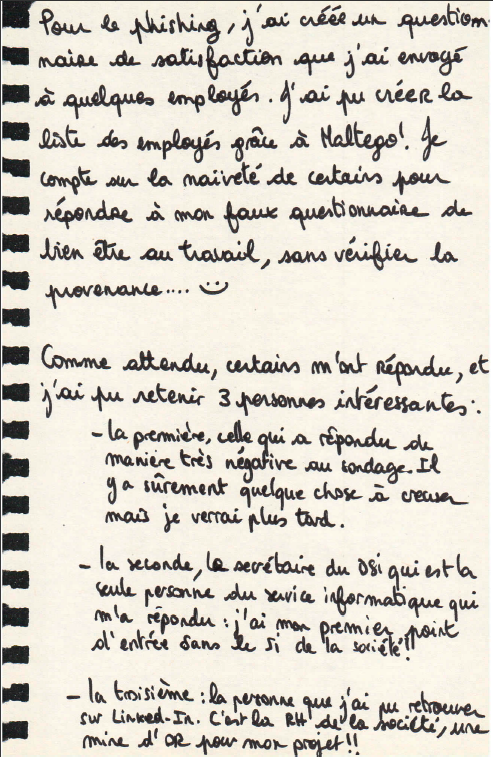 Pour le phishing, j'ai créée un question-
naire de satisfaction que j'ai envoyé
à quelques employés. J'ai pu créer la
liste des employés grâce à Maltego! Je
compte sur la naïveté de certains pour
répondre à mon faux questionnaire de
bien être au travail, sans vérifier la
provenance....
Comme attendu, certains m'ont répondu, et
j'ai pu retenir 3 personnes intéressantes :
- la première, celle qui a répondu de
manière très négative au sondage. Il
y a sûrement quelque chose à creuser
mais je verrai plus tard.
- la seconde, la secrétaire du DSi qui est la
seule personne du service informatique qui
m'a répondu : j'ai mon premier point
d'entrée dans le Si de la société!!
- la troisième : la personne que j'ai pu retrouver
sur Linked-In. C'est la RH de la société, une
mine d'OR pour mon projet!!